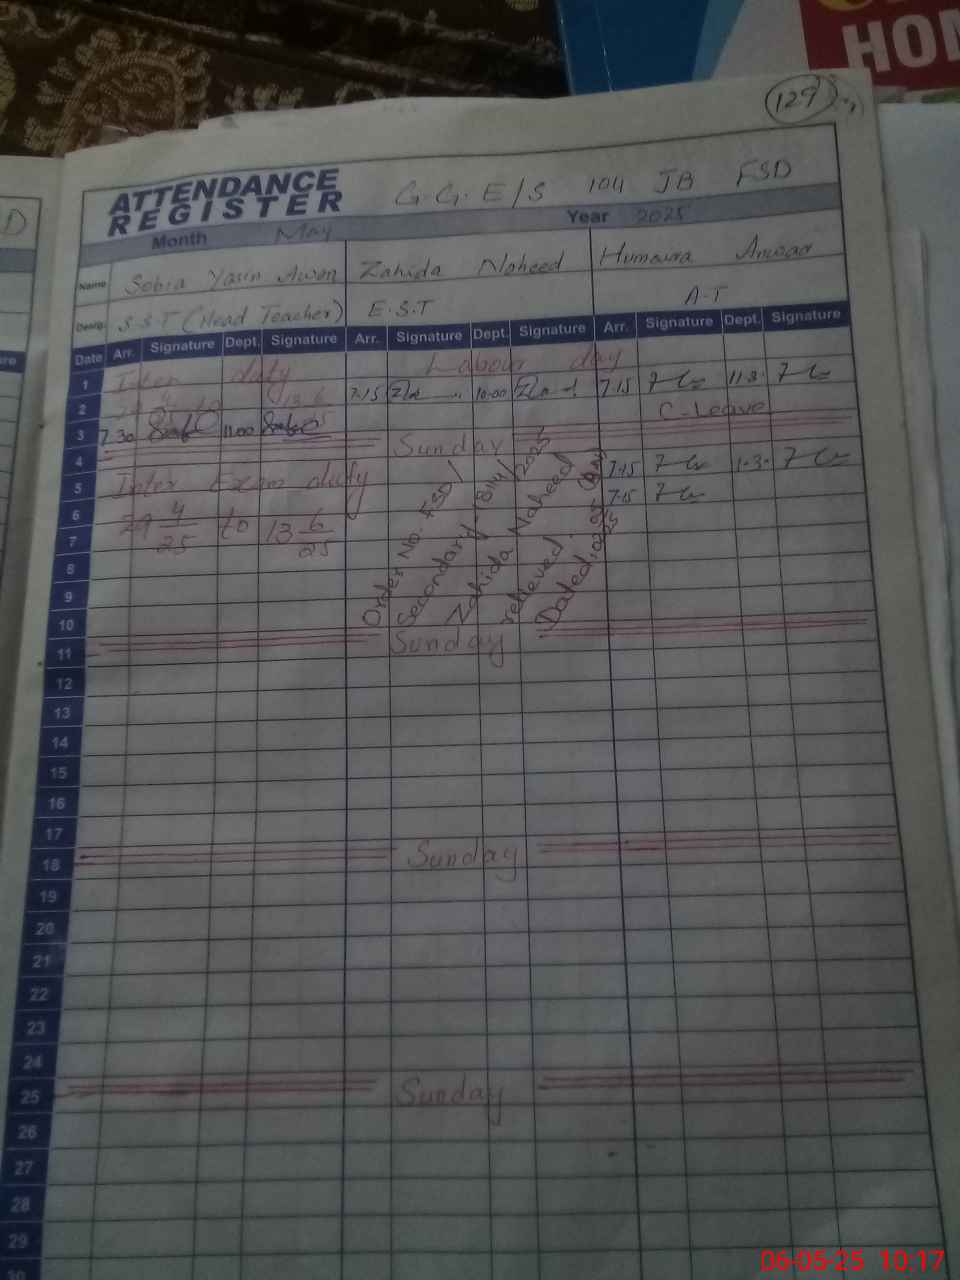 HOM
129
D
ATTENDANCE
REGISTER
G.G.E/S 104 JB FSD
Month May Year 2025
Name Sobia Yasin Awan Zahida Naheed Humaira Anwaar
Desig. S.S.T (Head Teacher) E.S.T A.T
Date Arr. Signature Dept. Signature Arr. Signature Dept. Signature Arr. Signature Dept. Signature
1 Inter duty Labour day
2 7.15 10.00 7.15 11.3.
3 7.30 11.00 C-Leave
4 Sunday
5 Inter Exam duty 7.15 1.3.
6 29 4/25 to 13 6/25 7.15
7
8
9
10
11 Sunday
Order No. FSD/
Secondary
Zahida Naheed
relieved.
Dated:
12
13
14
15
16
17
18 Sunday
19
20
21
22
23
24
25 Sunday
26
27
28
29
30
06-05-25 10:17